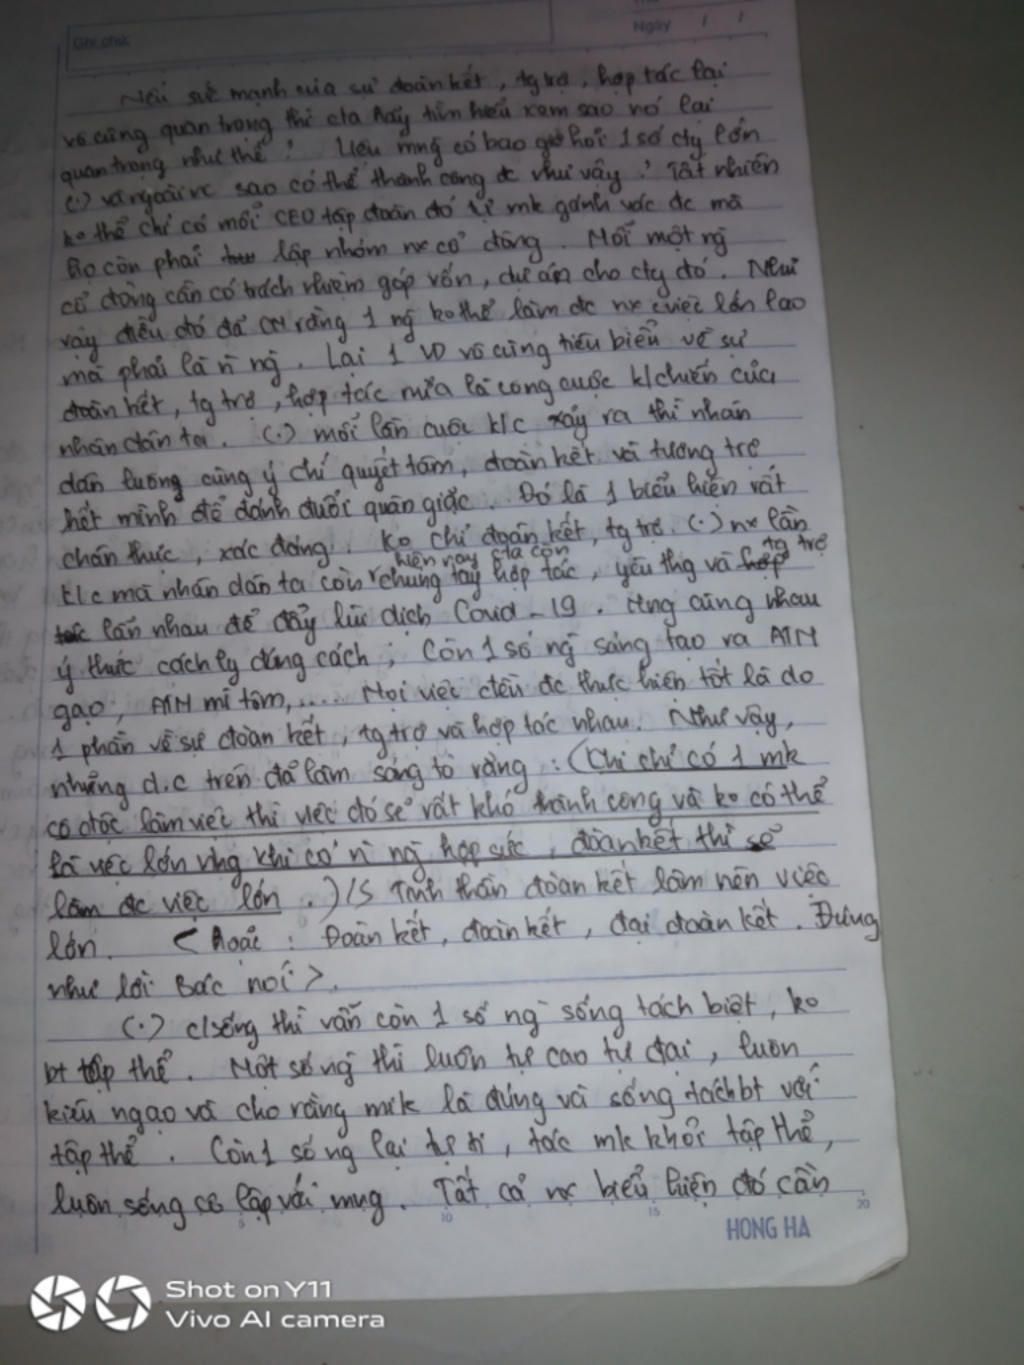 Ghi chú
Ngày / /
Nếu sức mạnh của sự đoàn kết, tg trợ, hợp tác lại
vô cùng quan trọng thì cta hãy tìm hiểu xem sao nó lại
quan trọng như thế? Liệu mng có bao giờ hỏi 1 số cty lớn
(.) và ngoài nc sao có thể thành công đc như vậy? Tất nhiên
ko thể chỉ có mỗi CEO tập đoàn đó tự mk gánh vác đc mà
Họ còn phải lập nhóm nx cổ đông. Mỗi một ng
cổ đông cần có trách nhiệm góp vốn, dự án cho cty đó. Như
vậy điều đó đã CM rằng 1 ng ko thể làm đc nx việc lớn lao
mà phải là n ng. Lại 1 VD vô cùng tiêu biểu về sự
đoàn kết, tg trợ, hợp tác nữa là công cuộc k/chiến của
nhân dân ta. (.) mỗi lần cuộc k/c xảy ra thì nhân
dân luông cùng ý chí quyết tâm, đoàn kết và tương trợ
hết mình để đánh đuổi quân giặc. Đó là 1 biểu hiện rất
chân thực, xác đáng. Ko chỉ đoàn kết, tg trợ (.) nx lần
hiện nay cta còn tg trợ
k/c mà nhân dân ta còn chung tay hợp tác, yêu thg và hợp
tác lẫn nhau để đẩy lùi dịch Covid-19. Mng cùng nhau
ý thức cách ly đúng cách; Còn 1 số ng sáng tạo ra ATM
gạo, ATM mì tôm,.... Mọi việc đều đc thực hiện tốt là do
1 phần về sự đoàn kết, tg trợ và hợp tác nhau. Như vậy,
những d.c trên đã làm sáng tỏ rằng: (Khi chỉ có 1 mk
cô độc làm việc thì việc đó sẽ rất khó thành công và ko có thể
là việc lớn nhg khi có n ng hợp sức, đoàn kết thì sẽ
làm đc việc lớn.)/S Tinh thần đoàn kết làm nên việc
lớn. < Hoặc: Đoàn kết, đoàn kết, đại đoàn kết. Đúng
như lời Bác nói >.
(.) c/sống thì vẫn còn 1 số ng sống tách biệt, ko
bt tập thể. Một số ng thì luôn tự cao tự đại, luôn
kiêu ngạo và cho rằng mk là đúng và sống tách bt với
tập thể. Còn 1 số ng lại tự ti, tác mk khỏi tập thể,
luôn sống cô lập với mng. Tất cả nx biểu hiện đó cần
5 10 15 20
HONG HA
Shot on Y11
Vivo AI camera